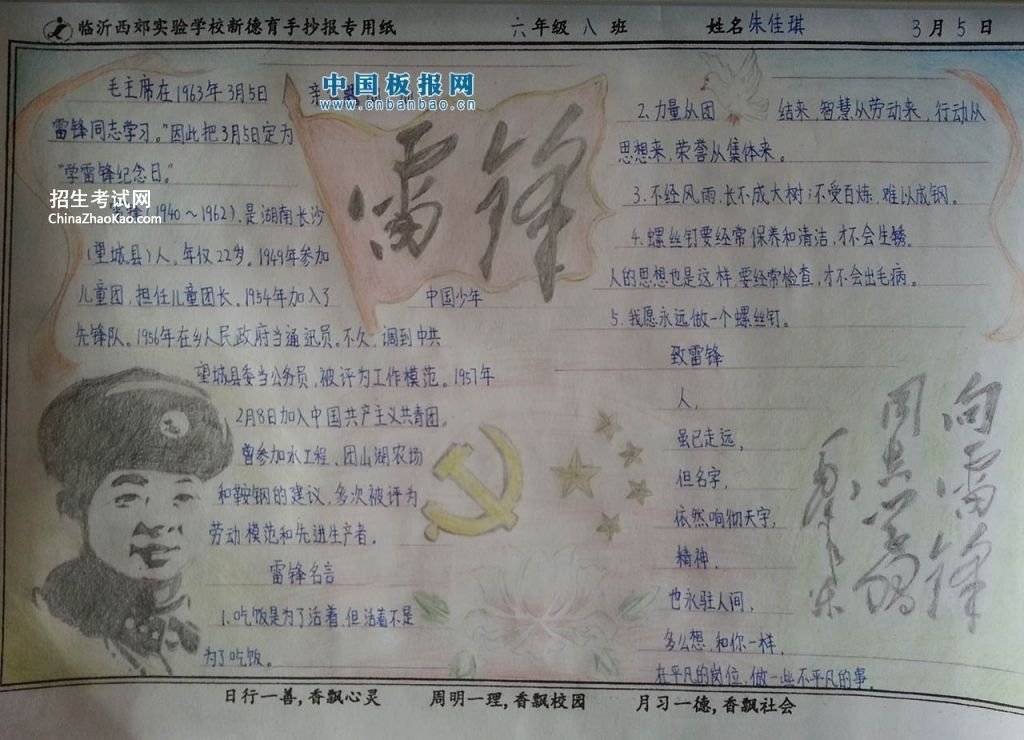 临沂西郊实验学校新德育手抄报专用纸
六年级 八 班
姓名 朱佳琪
3月5日
中国板报网
www.cnbanbao.cn
招生考试网
ChinaZhaoKao.com
毛主席在1963年3月5日 亲
雷锋同志学习。"因此把3月5日定为
"学雷锋纪念日。"
(1940～1962),是湖南长沙
(望城县)人。年仅22岁。1949年参加
儿童团,担任儿童团长。1954年加入了 中国少年
先锋队。1956年在乡人民政府当通迅员。不久,调到中共
望城县委当公务员,被评为工作模范。1957年
2月8日加入中国共产主义共青团。
曾参加水工程、团山湖农场
和鞍钢的建议,多次被评为
劳动模范和先进生产者。
雷锋名言
1.吃饭是为了活着,但活着不是
为了吃饭。
雷锋
2.力量从团 结来,智慧从劳动来,行动从
思想来,荣誉从集体来。
3.不经风雨,长不成大树;不受百炼,难以成钢。
4.螺丝钉要经常保养和清洁,才不会生锈。
人的思想也是这样,要经常检查,才不会出毛病。
5.我愿永远做一个螺丝钉。
致雷锋
人,
虽已走远,
但名字,
依然响彻天宇,
精神,
也永驻人间,
多么想,和你一样,
在平凡的岗位,做一些不平凡的事。
向雷锋
同志学习
毛泽东
日行一善,香飘心灵 周明一理,香飘校园 月习一德,香飘社会